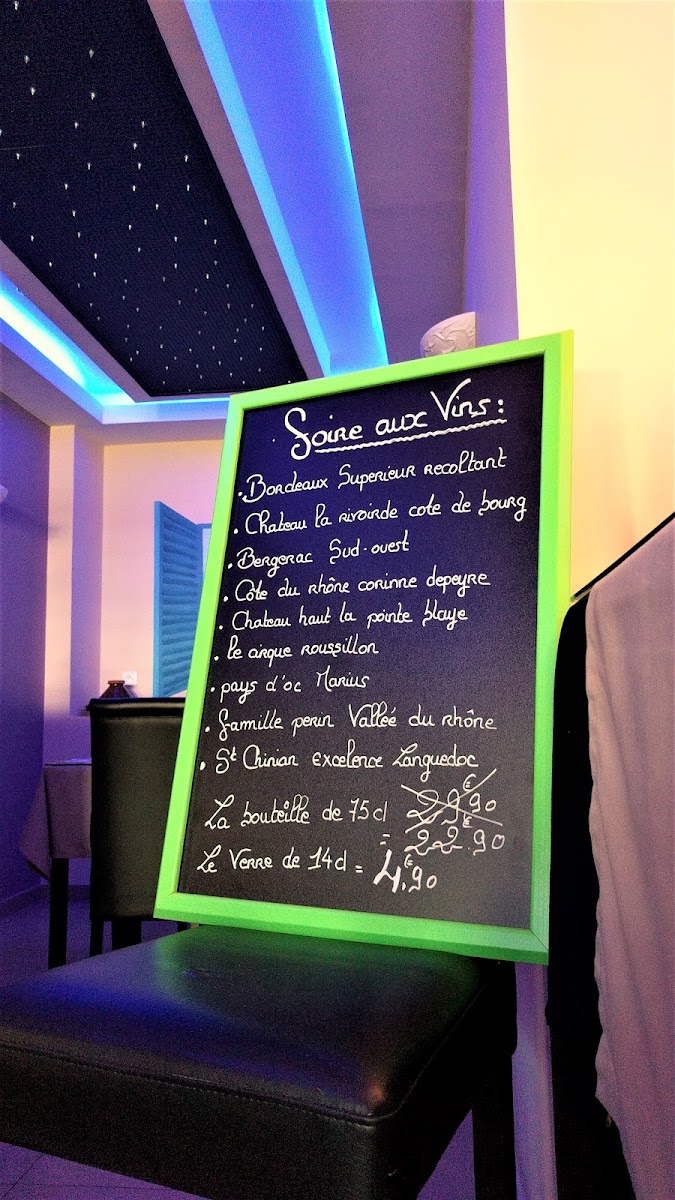 Foire aux Vins :
• Bordeaux Superieur recoltant
• Chateau la rivoirde cote de bourg
• Bergerac Sud-ouest
• Côte du rhône corinne depeyre
• Chateau haut la pointe blaye
• le cirque roussillon
• pays d'oc Marius
• famille perin Vallée du rhône
• St Chinian excelence Languedoc
La bouteille de 75cl 29€90
= 22€.90
Le Verre de 14cl = 4€.90